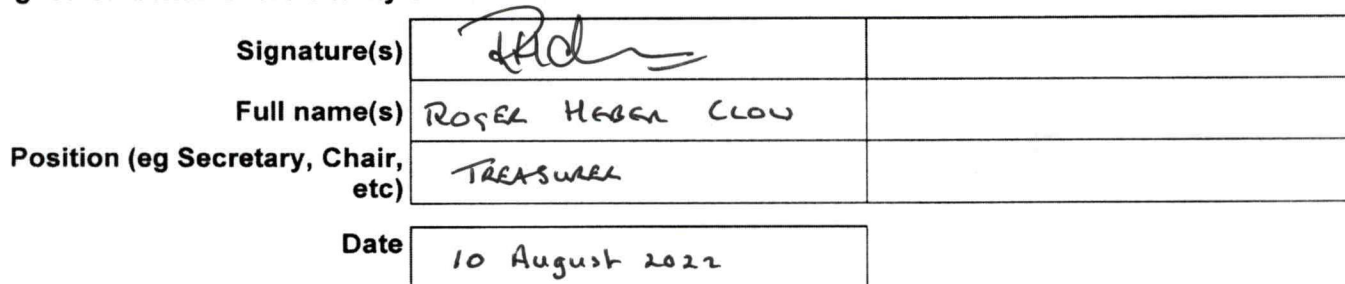 Signature(s)
Full name(s) ROGER HEBER CLOW
Position (eg Secretary, Chair, etc) TREASURER
Date 10 August 2022